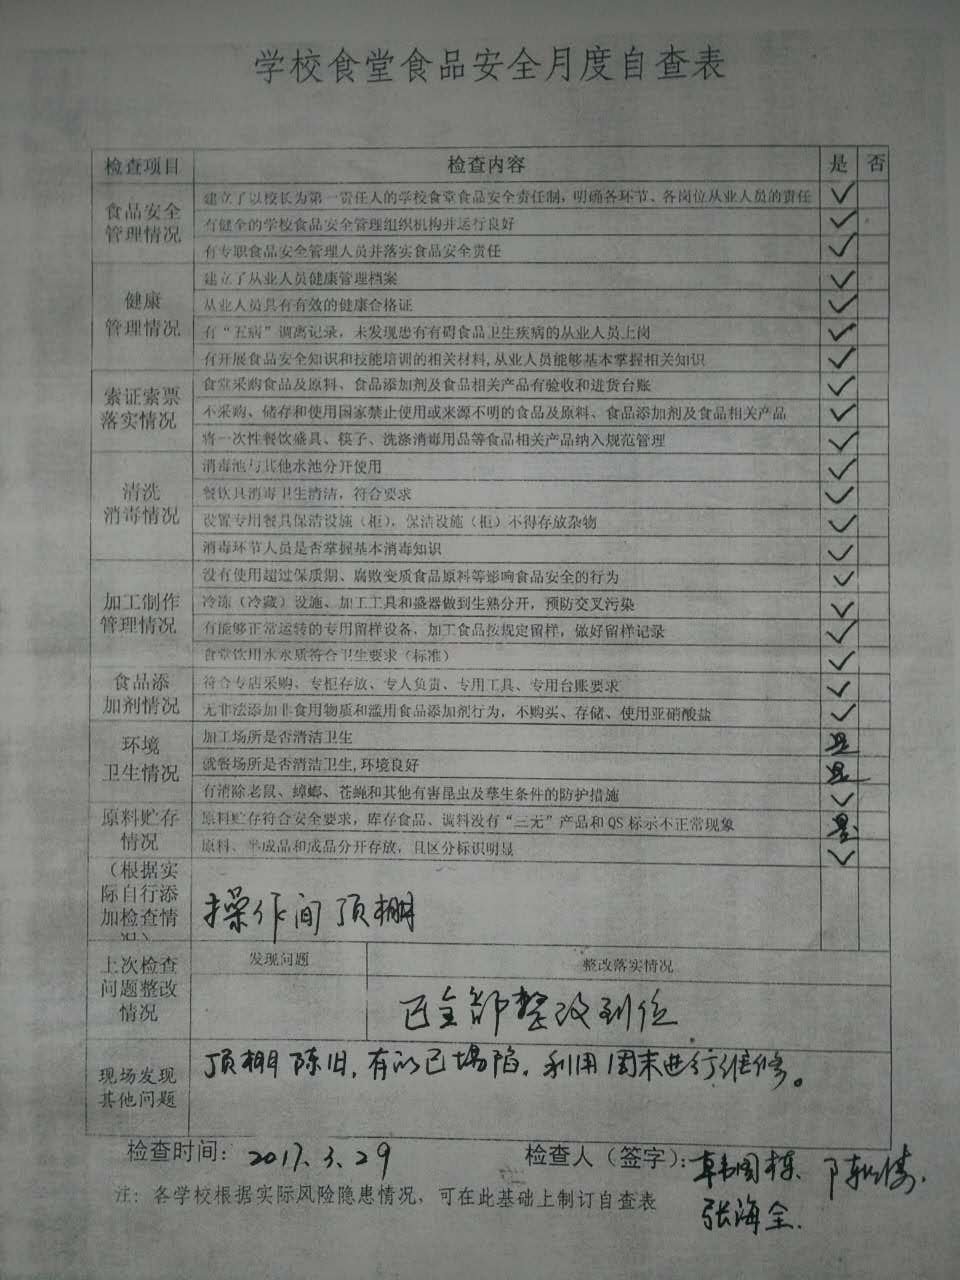 学校食堂食品安全月度自查表
检查项目 检查内容 是 否
食品安全管理情况
建立了以校长为第一责任人的学校食堂食品安全责任制，明确各环节、各岗位从业人员的责任 ✓
有健全的学校食品安全管理组织机构并运行良好 ✓
有专职食品安全管理人员并落实食品安全责任 ✓
健康管理情况
建立了从业人员健康管理档案 ✓
从业人员具有有效的健康合格证 ✓
有“五病”调离记录，未发现患有有碍食品卫生疾病的从业人员上岗 ✓
有开展食品安全知识和技能培训的相关材料,从业人员能够基本掌握相关知识 ✓
索证索票落实情况
食堂采购食品及原料、食品添加剂及食品相关产品有验收和进货台账 ✓
不采购、储存和使用国家禁止使用或来源不明的食品及原料、食品添加剂及食品相关产品 ✓
将一次性餐饮盛具、筷子、洗涤消毒用品等食品相关产品纳入规范管理 ✓
清洗消毒情况
消毒池与其他水池分开使用 ✓
餐饮具消毒卫生清洁，符合要求 ✓
设置专用餐具保洁设施（柜），保洁设施（柜）不得存放杂物 ✓
消毒环节人员是否掌握基本消毒知识 ✓
加工制作管理情况
没有使用超过保质期、腐败变质食品原料等影响食品安全的行为 ✓
冷冻（冷藏）设施、加工工具和盛器做到生熟分开，预防交叉污染 ✓
有能够正常运转的专用留样设备，加工食品按规定留样，做好留样记录 ✓
食堂饮用水水质符合卫生要求（标准） ✓
食品添加剂情况
符合专店采购、专柜存放、专人负责、专用工具、专用台账要求 ✓
无非法添加非食用物质和滥用食品添加剂行为，不购买、存储、使用亚硝酸盐 ✓
环境卫生情况
加工场所是否清洁卫生 是
就餐场所是否清洁卫生,环境良好 是
有消除老鼠、蟑螂、苍蝇和其他有害昆虫及孳生条件的防护措施 ✓
原料贮存情况
原料贮存符合安全要求，库存食品、调料没有“三无”产品和QS标示不正常现象 是
原料、半成品和成品分开存放，且区分标识明显 ✓
（根据实际自行添加检查情况）
操作间顶棚
上次检查问题整改情况
发现问题 整改落实情况
已全部整改到位
现场发现其他问题
顶棚陈旧，有的已塌陷，利用周末进行维修。
检查时间：2017.3.29 检查人（签字）：韩国栋、陈
张海全.
注：各学校根据实际风险隐患情况，可在此基础上制订自查表